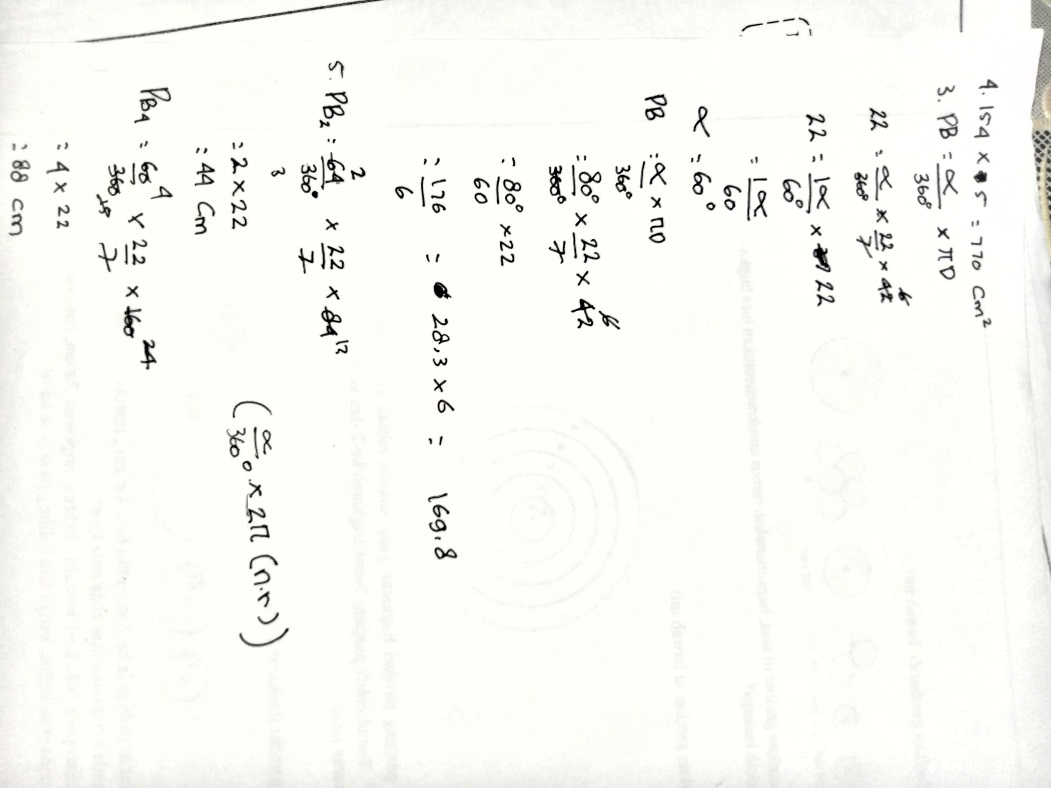 4. 154 x 5 = 770 cm²
3. PB = α/360° x πD
22 = α/360° x 22/7 x 42 6
22 = 1α/60° x 22
= 1α/60
α = 60°
PB = α/360° x πD
= 80°/360° x 22/7 x 42 6
= 80°/60 x 22
= 176/6 = 28,3 x 6 = 169,8
5. PB₂ = 64/360° 2 x 22/7 x 84 12
3
= 2 x 22
= 44 cm
(α/360° x 2π (n.r))
PB4 = 60/360 4 x 22/7 x 160 24
= 4 x 22
= 88 cm